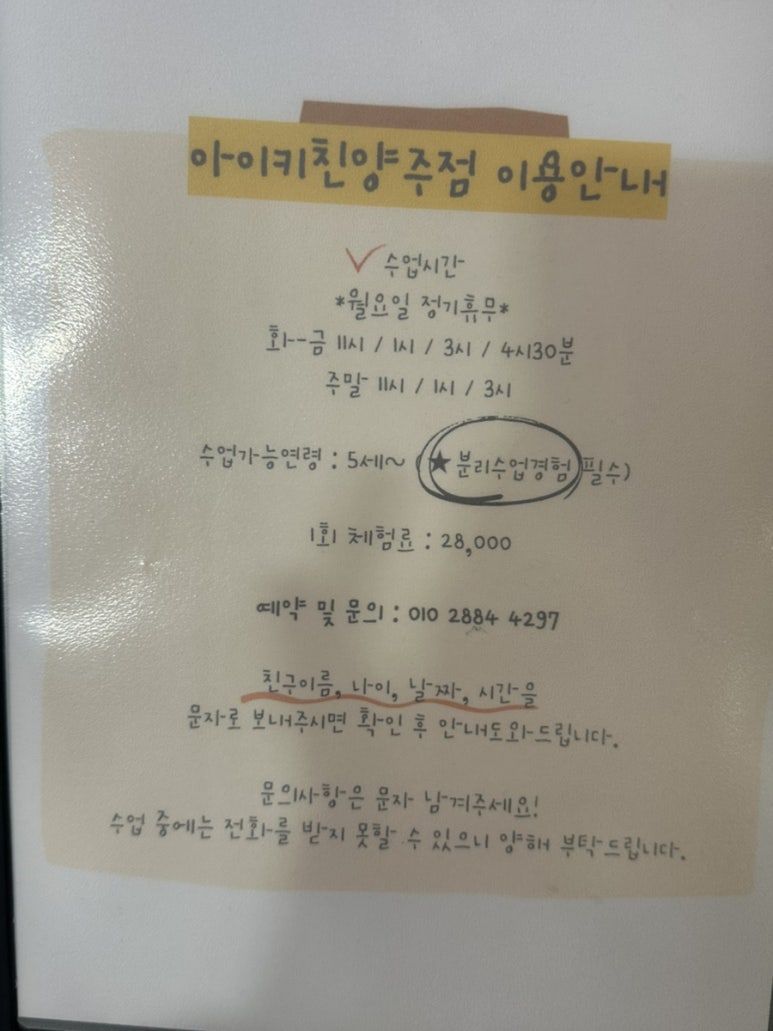 아이키친양주점 이용안내
수업시간
*월요일 정기휴무*
화-금 11시 / 1시 / 3시 / 4시30분
주말 11시 / 1시 / 3시
수업가능연령 : 5세~ (★분리수업경험 필수)
1회 체험료 : 28,000
예약 및 문의 : 010 2884 4297
친구이름, 나이, 날짜, 시간을
문자로 보내주시면 확인 후 안내도와드립니다.
문의사항은 문자 남겨주세요!
수업 중에는 전화를 받지 못할 수 있으니 양해 부탁드립니다.